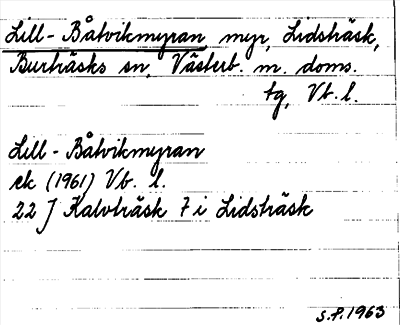 Lill-Båtvikmyran myr, Lidsträsk,
Burträsks sn, Västerb. m. doms.
tg, Vb. l.
Lill-Båtvikmyran
ek (1961) Vb. l.
22 J Kalvträsk 7 i Lidsträsk
S.P. 1963